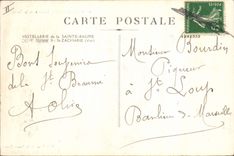 II
CARTE POSTALE
HOTELLERIE DE LA SAINTE-BAUME
P. St-ZACHARIE (Var)
Bons Souvenirs
de la Ste Baume
A
Monsieur Bourdin
Piqueur
à St Loup
Banlieue de Marseille